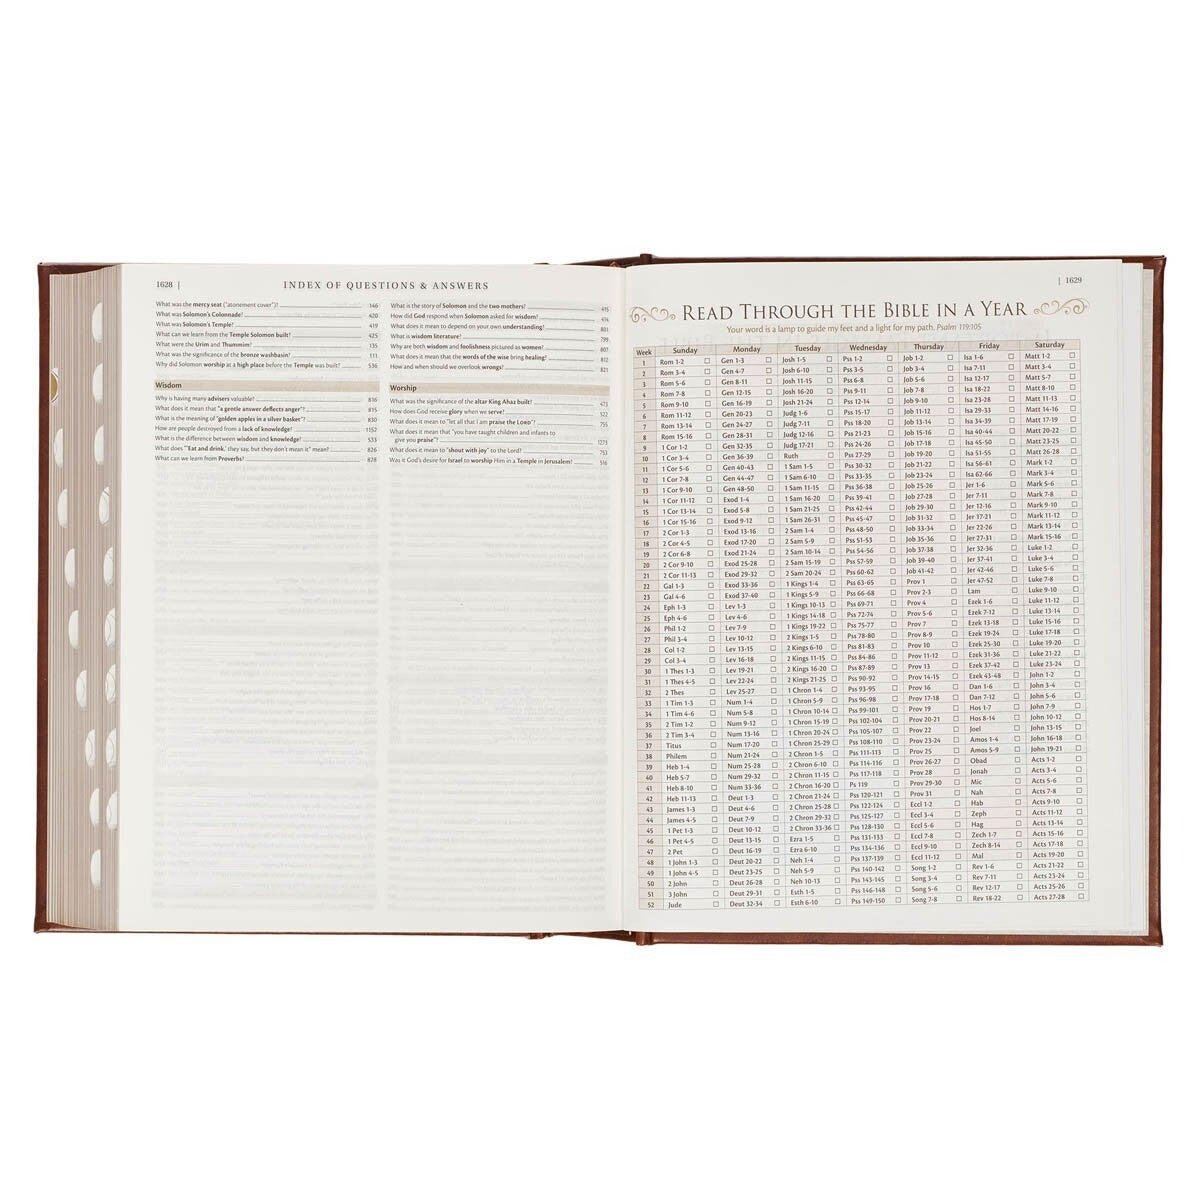 1628 |
INDEX OF QUESTIONS & ANSWERS
What was the mercy seat ("atonement cover")? 146
What was Solomon's Colonnade? 420
What was Solomon's Temple? 419
What can we learn from the Temple Solomon built? 425
What were the Urim and Thummim? 135
What was the significance of the bronze washbasin? 111
Why did Solomon worship at a high place before the Temple was built? 536
Wisdom
Why is having many advisers valuable? 816
What does it mean that "a gentle answer deflects anger"? 815
What is the meaning of "golden apples in a silver basket"? 830
How are people destroyed from a lack of knowledge? 1152
What is the difference between wisdom and knowledge? 533
What does "'Eat and drink,' they say, but they don't mean it" mean? 826
What can we learn from Proverbs? 828
What is the story of Solomon and the two mothers? 415
How did God respond when Solomon asked for wisdom? 414
What does it mean to depend on your own understanding? 801
What is wisdom literature? 799
Why are both wisdom and foolishness pictured as women? 807
What does it mean that the words of the wise bring healing? 812
How and when should we overlook wrongs? 821
Worship
What was the significance of the altar King Ahaz built? 473
How does God receive glory when we serve? 522
What does it mean to "let all that I am praise the LORD"? 755
What does it mean that "you have taught children and infants to
give you praise"? 1273
What does it mean to "shout with joy" to the Lord? 753
Was it God's desire for Israel to worship Him in a Temple in Jerusalem? 516
| 1629
READ THROUGH THE BIBLE IN A YEAR
Your word is a lamp to guide my feet and a light for my path. Psalm 119:105
Week Sunday Monday Tuesday Wednesday Thursday Friday Saturday
1 Rom 1-2 Gen 1-3 Josh 1-5 Pss 1-2 Job 1-2 Isa 1-6 Matt 1-2
2 Rom 3-4 Gen 4-7 Josh 6-10 Pss 3-5 Job 3-4 Isa 7-11 Matt 3-4
3 Rom 5-6 Gen 8-11 Josh 11-15 Pss 6-8 Job 5-6 Isa 12-17 Matt 5-7
4 Rom 7-8 Gen 12-15 Josh 16-20 Pss 9-11 Job 7-8 Isa 18-22 Matt 8-10
5 Rom 9-10 Gen 16-19 Josh 21-24 Pss 12-14 Job 9-10 Isa 23-28 Matt 11-13
6 Rom 11-12 Gen 20-23 Judg 1-6 Pss 15-17 Job 11-12 Isa 29-33 Matt 14-16
7 Rom 13-14 Gen 24-27 Judg 7-11 Pss 18-20 Job 13-14 Isa 34-39 Matt 17-19
8 Rom 15-16 Gen 28-31 Judg 12-16 Pss 21-23 Job 15-16 Isa 40-44 Matt 20-22
9 1 Cor 1-2 Gen 32-35 Judg 17-21 Pss 24-26 Job 17-18 Isa 45-50 Matt 23-25
10 1 Cor 3-4 Gen 36-39 Ruth Pss 27-29 Job 19-20 Isa 51-55 Matt 26-28
11 1 Cor 5-6 Gen 40-43 1 Sam 1-5 Pss 30-32 Job 21-22 Isa 56-61 Mark 1-2
12 1 Cor 7-8 Gen 44-47 1 Sam 6-10 Pss 33-35 Job 23-24 Isa 62-66 Mark 3-4
13 1 Cor 9-10 Gen 48-50 1 Sam 11-15 Pss 36-38 Job 25-26 Jer 1-6 Mark 5-6
14 1 Cor 11-12 Exod 1-4 1 Sam 16-20 Pss 39-41 Job 27-28 Jer 7-11 Mark 7-8
15 1 Cor 13-14 Exod 5-8 1 Sam 21-25 Pss 42-44 Job 29-30 Jer 12-16 Mark 9-10
16 1 Cor 15-16 Exod 9-12 1 Sam 26-31 Pss 45-47 Job 31-32 Jer 17-21 Mark 11-12
17 2 Cor 1-3 Exod 13-16 2 Sam 1-4 Pss 48-50 Job 33-34 Jer 22-26 Mark 13-14
18 2 Cor 4-5 Exod 17-20 2 Sam 5-9 Pss 51-53 Job 35-36 Jer 27-31 Mark 15-16
19 2 Cor 6-8 Exod 21-24 2 Sam 10-14 Pss 54-56 Job 37-38 Jer 32-36 Luke 1-2
20 2 Cor 9-10 Exod 25-28 2 Sam 15-19 Pss 57-59 Job 39-40 Jer 37-41 Luke 3-4
21 2 Cor 11-13 Exod 29-32 2 Sam 20-24 Pss 60-62 Job 41-42 Jer 42-46 Luke 5-6
22 Gal 1-3 Exod 33-36 1 Kings 1-4 Pss 63-65 Prov 1 Jer 47-52 Luke 7-8
23 Gal 4-6 Exod 37-40 1 Kings 5-9 Pss 66-68 Prov 2-3 Lam Luke 9-10
24 Eph 1-3 Lev 1-3 1 Kings 10-13 Pss 69-71 Prov 4 Ezek 1-6 Luke 11-12
25 Eph 4-6 Lev 4-6 1 Kings 14-18 Pss 72-74 Prov 5-6 Ezek 7-12 Luke 13-14
26 Phil 1-2 Lev 7-9 1 Kings 19-22 Pss 75-77 Prov 7 Ezek 13-18 Luke 15-16
27 Phil 3-4 Lev 10-12 2 Kings 1-5 Pss 78-80 Prov 8-9 Ezek 19-24 Luke 17-18
28 Col 1-2 Lev 13-15 2 Kings 6-10 Pss 81-83 Prov 10 Ezek 25-30 Luke 19-20
29 Col 3-4 Lev 16-18 2 Kings 11-15 Pss 84-86 Prov 11-12 Ezek 31-36 Luke 21-22
30 1 Thes 1-3 Lev 19-21 2 Kings 16-20 Pss 87-89 Prov 13 Ezek 37-42 Luke 23-24
31 1 Thes 4-5 Lev 22-24 2 Kings 21-25 Pss 90-92 Prov 14-15 Ezek 43-48 John 1-2
32 2 Thes Lev 25-27 1 Chron 1-4 Pss 93-95 Prov 16 Dan 1-6 John 3-4
33 1 Tim 1-3 Num 1-4 1 Chron 5-9 Pss 96-98 Prov 17-18 Dan 7-12 John 5-6
34 1 Tim 4-6 Num 5-8 1 Chron 10-14 Pss 99-101 Prov 19 Hos 1-7 John 7-9
35 2 Tim 1-2 Num 9-12 1 Chron 15-19 Pss 102-104 Prov 20-21 Hos 8-14 John 10-12
36 2 Tim 3-4 Num 13-16 1 Chron 20-24 Pss 105-107 Prov 22 Joel John 13-15
37 Titus Num 17-20 1 Chron 25-29 Pss 108-110 Prov 23-24 Amos 1-4 John 16-18
38 Philem Num 21-24 2 Chron 1-5 Pss 111-113 Prov 25 Amos 5-9 John 19-21
39 Heb 1-4 Num 25-28 2 Chron 6-10 Pss 114-116 Prov 26-27 Obad Acts 1-2
40 Heb 5-7 Num 29-32 2 Chron 11-15 Pss 117-118 Prov 28 Jonah Acts 3-4
41 Heb 8-10 Num 33-36 2 Chron 16-20 Ps 119 Prov 29-30 Mic Acts 5-6
42 Heb 11-13 Deut 1-3 2 Chron 21-24 Pss 120-121 Prov 31 Nah Acts 7-8
43 James 1-3 Deut 4-6 2 Chron 25-28 Pss 122-124 Eccl 1-2 Hab Acts 9-10
44 James 4-5 Deut 7-9 2 Chron 29-32 Pss 125-127 Eccl 3-4 Zeph Acts 11-12
45 1 Pet 1-3 Deut 10-12 2 Chron 33-36 Pss 128-130 Eccl 5-6 Hag Acts 13-14
46 1 Pet 4-5 Deut 13-15 Ezra 1-5 Pss 131-133 Eccl 7-8 Zech 1-7 Acts 15-16
47 2 Pet Deut 16-19 Ezra 6-10 Pss 134-136 Eccl 9-10 Zech 8-14 Acts 17-18
48 1 John 1-3 Deut 20-22 Neh 1-4 Pss 137-139 Eccl 11-12 Mal Acts 19-20
49 1 John 4-5 Deut 23-25 Neh 5-9 Pss 140-142 Song 1-2 Rev 1-6 Acts 21-22
50 2 John Deut 26-28 Neh 10-13 Pss 143-145 Song 3-4 Rev 7-11 Acts 23-24
51 3 John Deut 29-31 Esth 1-5 Pss 146-148 Song 5-6 Rev 12-17 Acts 25-26
52 Jude Deut 32-34 Esth 6-10 Pss 149-150 Song 7-8 Rev 18-22 Acts 27-28